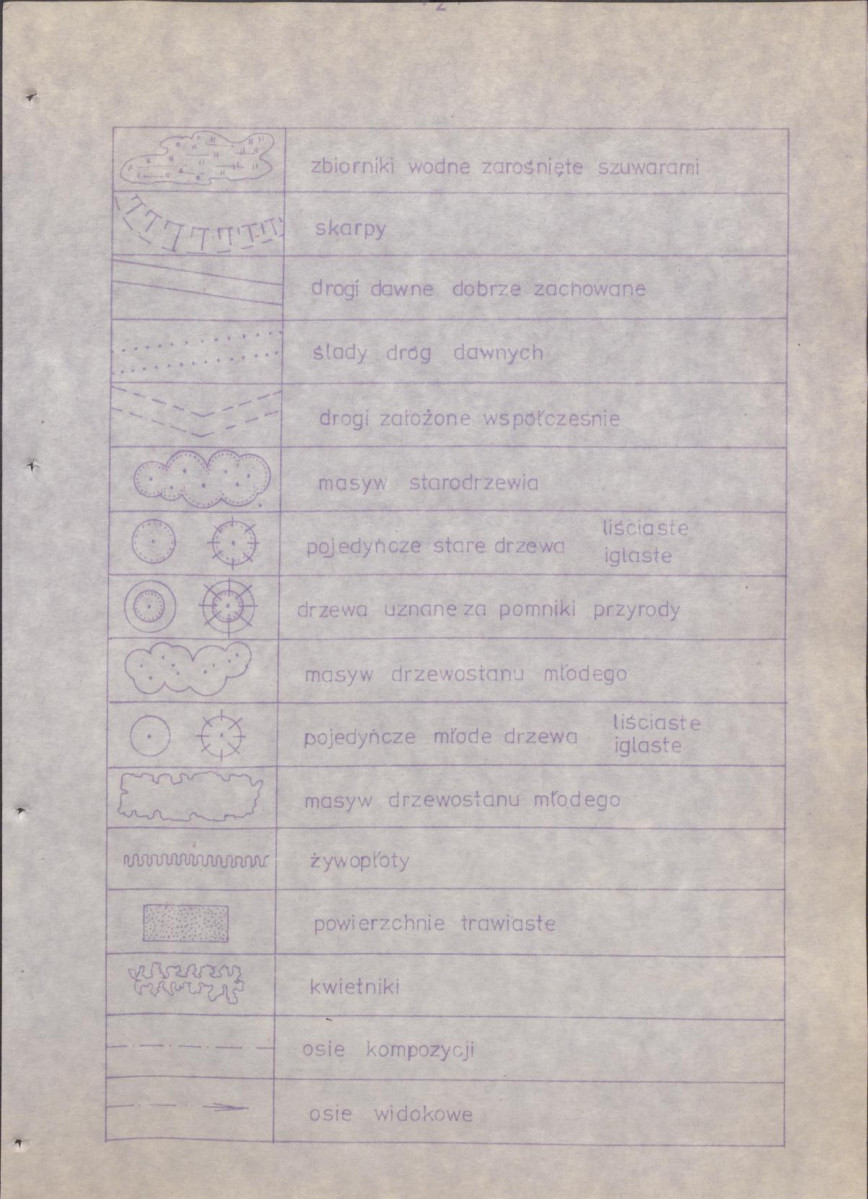 2
zbiorniki wodne zarośnięte szuwarami
skarpy
drogi dawne dobrze zachowane
ślady dróg dawnych
drogi założone współcześnie
masyw starodrzewia
pojedyńcze stare drzewa liściaste
iglaste
drzewa uznane za pomniki przyrody
masyw drzewostanu młodego
pojedyńcze młode drzewa liściaste
iglaste
masyw drzewostanu młodego
żywopłoty
powierzchnie trawiaste
kwietniki
osie kompozycji
osie widokowe